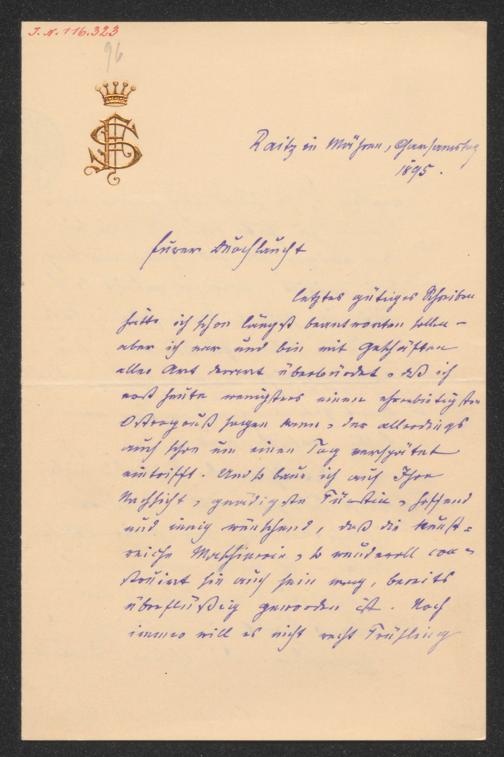 J. N. 116.323
96
Raitz in Mähren, Charsamstag
1895.
Euerer Durchlaucht
letztes gütiges Schreiben
hätte ich schon längst beantworten sollen –
aber ich war und bin mit Geschäften
aller Art derart überbürdet, daß ich
erst heute wenigstens einen ehrerbietigsten
Ostergruß sagen kann, der allerdings
auch schon um einen Tag verspätet
eintrifft. Und so baue ich auf Ihre
Nachsicht, gnädigste Fürstin, hoffend
und innig wünschend, daß die kunst-
reiche Maschinerie, so wundervoll con-
struirt sie auch sein mag, bereits
überflüssig geworden ist. Noch
immer will es nicht recht Frühling